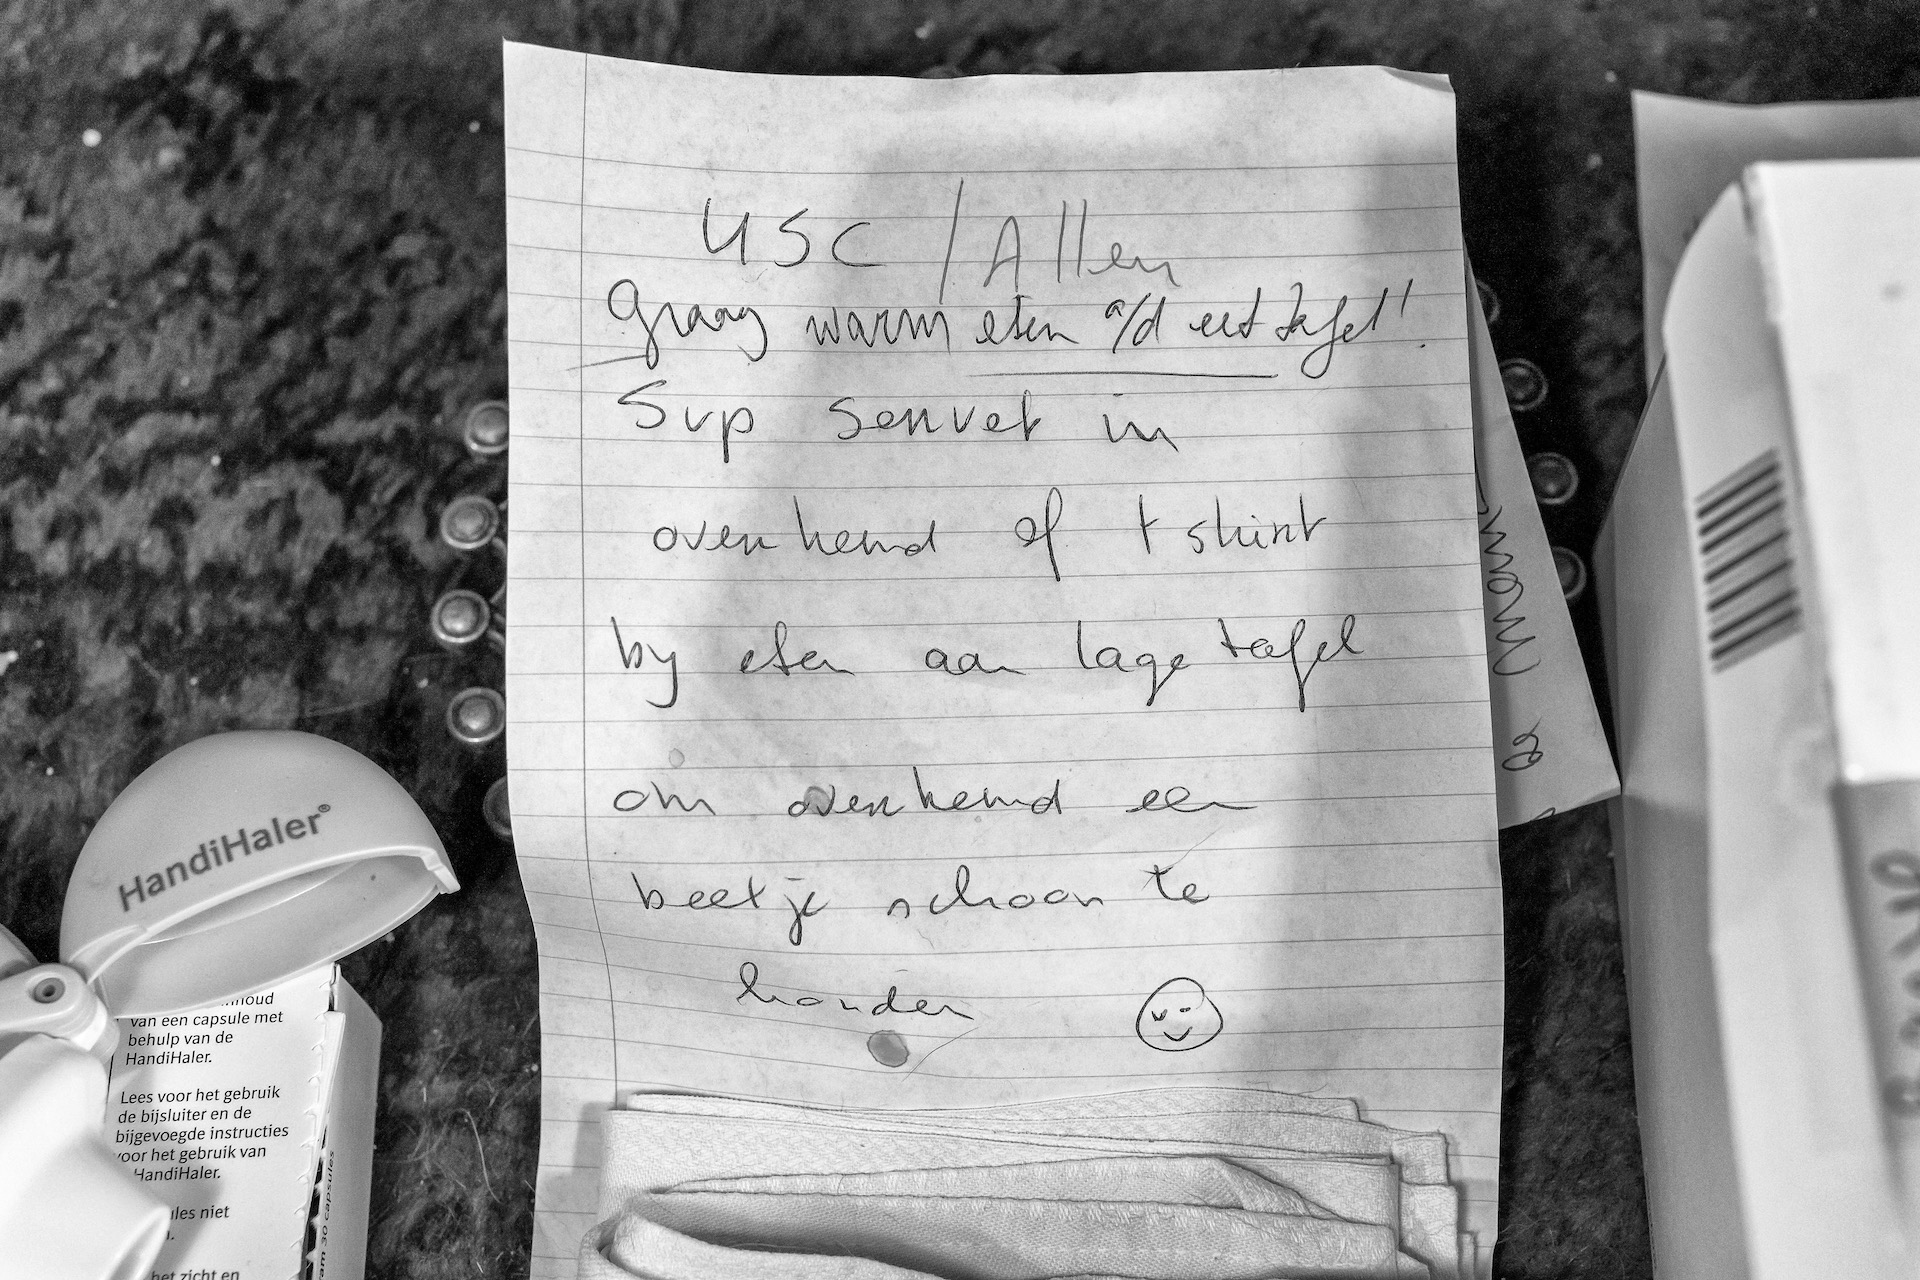 USC / Allen
Graag warm eten a/d eettafel!
Svp servet in
overhemd of t shirt
by eten aan lage tafel
om overhemd een
beetje schoon te
houden
HandiHaler®
van een capsule met
behulp van de
HandiHaler.
Lees voor het gebruik
de bijsluiter en de
bijgevoegde instructies
voor het gebruik van
HandiHaler.
niet
het zicht en
30 capsules